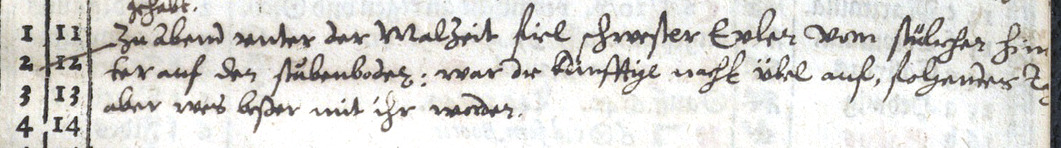 gehabt.
1 11 Zu Abend unter der Malzeit fiel schwester Eules vom stülichen hin
2 12 ter auf den stubenboden: war die künfftige nacht übel auf, folgendes
3 13 aber was besser mit ihr worden.
4 14